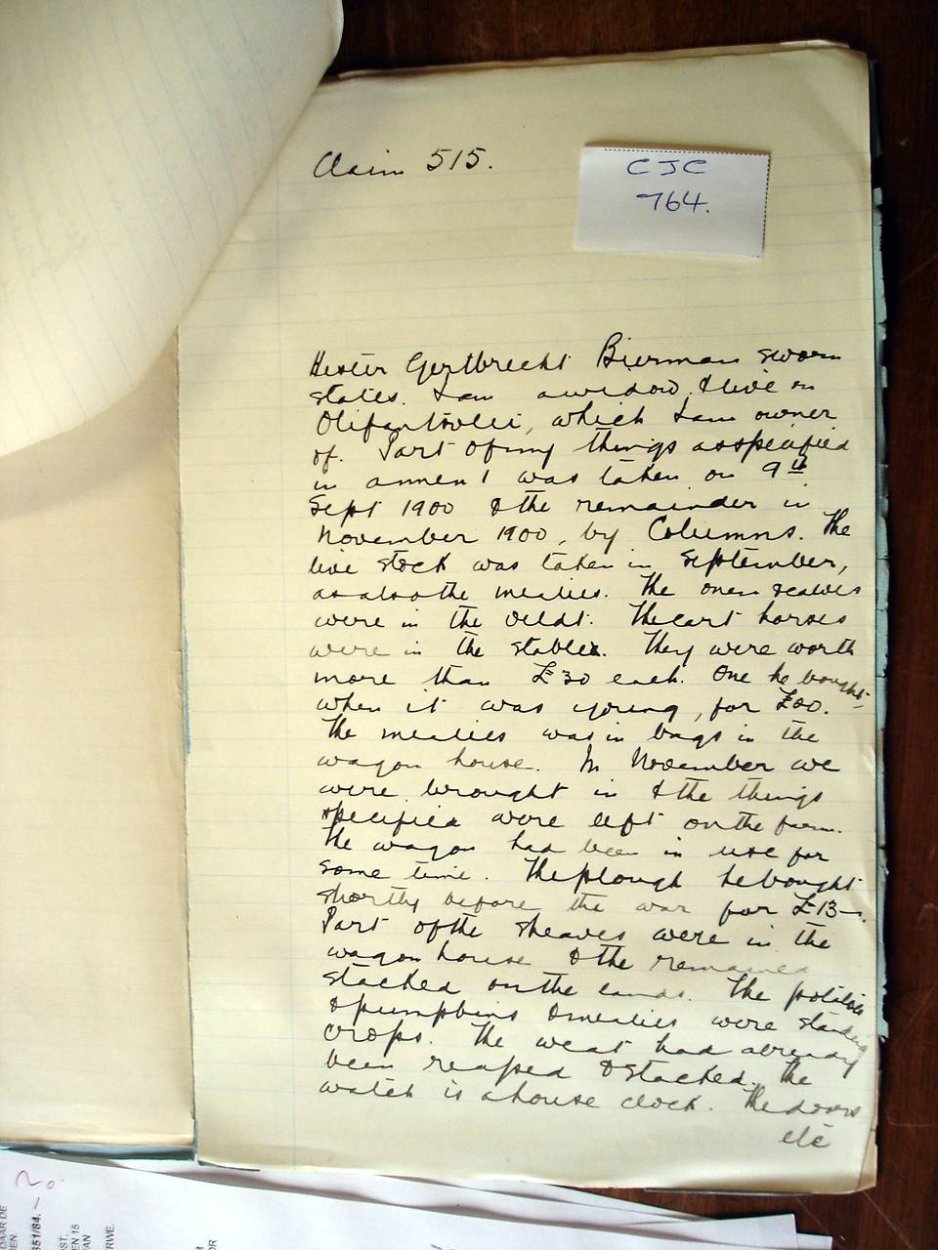 Claim 515.
CJC
764.
Hester Gertbrecht Bierman sworn
states. I am a widow & live on
Olifantsvlei, which I am owner
of. Part of my things as specified
in annex 1 was taken on 9th
Sept 1900 & the remainder in
November 1900, by Columns. The
live stock was taken in September,
as also the mealies. The oxen & calves
were in the veldt. The cart horses
were in the stable. They were worth
more than £30 each. One he bought
when it was young, for
The mealies was in bags in the
wagon house. In November we
were brought in & the things
specified were left on the farm.
The wagon had been in use for
some time. The plough he bought
shortly before the war for £13-.
Part of the sheaves were in the
wagon house & the remained
stacked on the lands. The potatoes
& pumpkins & mealies were standing
crops. The weat had already
been reaped & stacked. The
watch is a house clock. The doors
etc